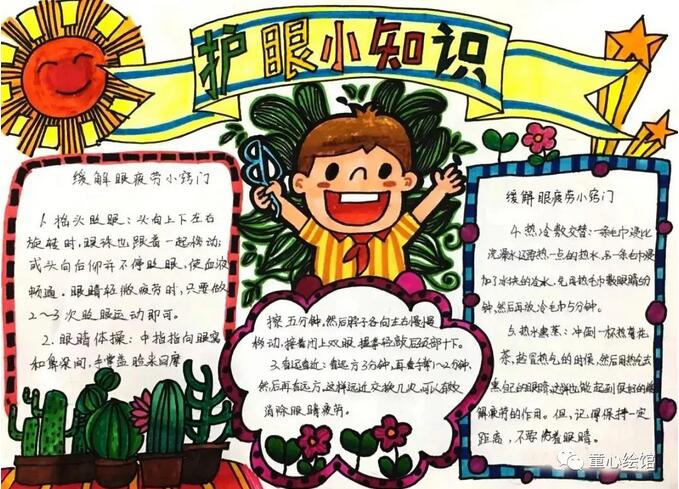 护眼小知识
缓解眼疲劳小窍门
1. 抬头眨眼：头向上下左右
旋转时，眼珠也跟着一起移动；
或头向后仰并不停眨眼，使血液
畅通。眼睛轻微疲劳时，只要做
2～3次眨眼运动即可。
2. 眼睛体操：中指指向眼窝
和鼻梁间，手掌盖脸来回摩
擦五分钟，然后脖子各向左右慢慢
移动，接着闭上双眼，
3. 看远看近：看远方3分钟，再看手掌1～2分钟，
然后再看远方。这样远近交换几次，可以有效
消除眼睛疲劳。
缓解眼疲劳小窍门
4. 热冷敷交替：一条毛巾浸比
洗澡水还要热一点的热水，另一条毛巾浸
加了冰块的冷水，先用热毛巾敷眼睛约
钟，然后再敷冷毛巾5分钟。
5. 热水熏蒸：冲倒一杯热菊花
茶，趁冒热气的时候，然后用热气去
熏自己的眼睛，这样也能起到很好的缓
解疲劳的作用。但，记得保持一定
距离，不要烫着眼睛。
童心绘馆